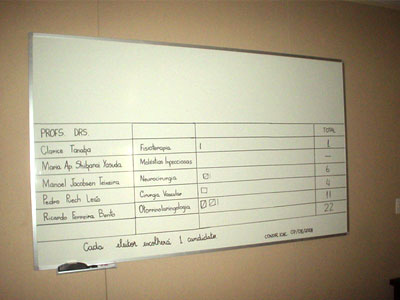 PROFS. DRS. TOTAL
Clarice Tanaka Fisioterapia 1
Maria Ap. Shikanai Yasuda Moléstias Infecciosas —
Manoel Jacobsen Teixeira Neurocirurgia 6
Pedro Puech Leão Cirurgia Vascular 4
Ricardo Ferreira Bento Otorrinolaringologia 11
22
Cada eleitor escolherá 1 candidato